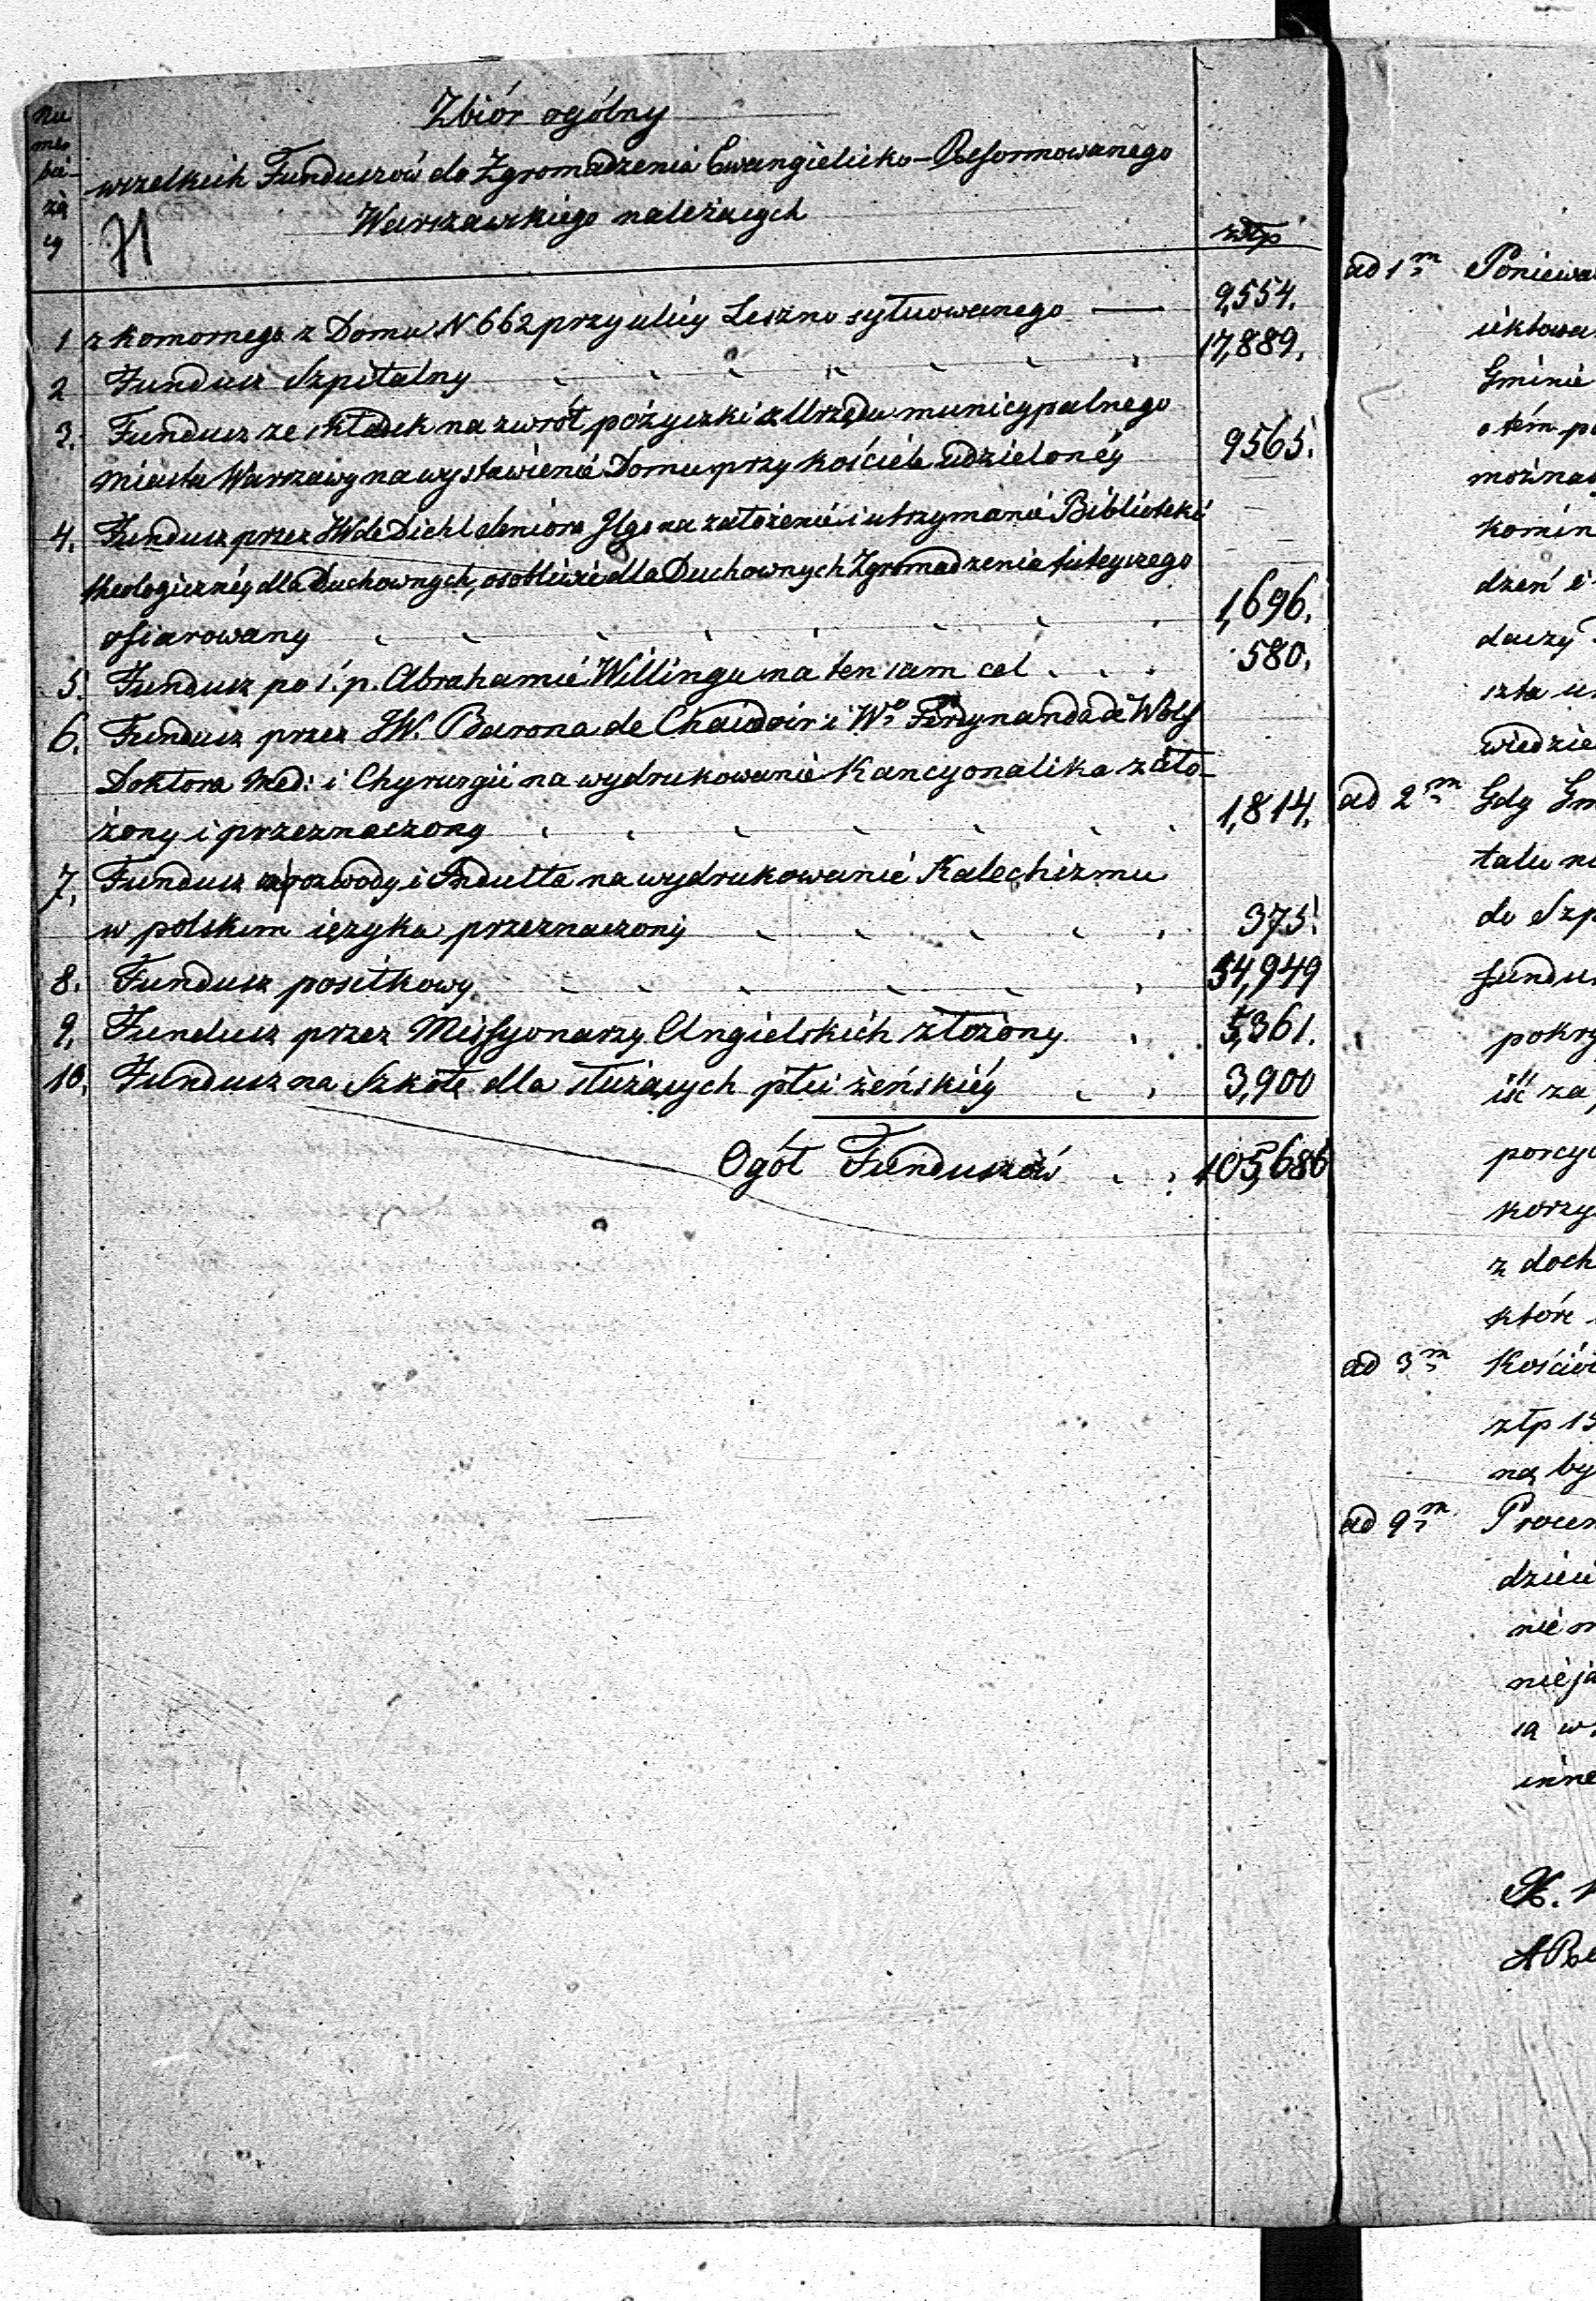 Nu
mer
bie-
żą
cy
Zbiór ogólny
wszelkich Funduszów do Zgromadzenia Ewangielicko-Reformowanego
Warszawskiego należących
złtp
1 z komornego z Domu N 662 przy ulicy Leszno sytuowanego — 9,554.
2 Fundusz Szpitalny 17,889.
3. Fundusz ze składek na zwrót pożyczki z Urzędu municypalnego
miasta Warszawy na wystawienie Domu przy kościele udzieloney 9565.
4. Fundusz przez JW de Diehl Seniora Jlgo na założenie i utrzymanie Biblioteki
theologiczney dla Duchownych, osobliwie dla Duchownych Zgromadzenia tuteyszego
ofiarowany 1,696.
5. Fundusz po ś. p. Abrahamie Willingu na ten sam cel 580.
6. Fundusz przez JW. Barona de Chaudoir i Wo Ferdynanda de Wolf
Doktora Med: i Chyrurgii na wydrukowanie Kancyonalika zało-
żony i przeznaczony 1,814.
7. Fundusz rozwody i Indulta na wydrukowanie Katechizmu
w polskim ięzyku przeznaczony 375.
8. Fundusz posiłkowy 54,949
9. Fundusz przez Missyonarzy Angielskich złożony 5,361.
10. Fundusz na Szkołę dla służących płci żeńskiéy 3,900
Ogół Funduszów 105,686
ad 1m Poniewa
Gminie
o tém
można
komin
dzeń
daczy
szta
wiedzie
ad 2m Gdy Gm
talu
do Szp
fundu
pokry
iść za
porcy
korzy
z doch
któré
ad 3m Kośció
złp 15
ną by
ad 9m Procen
dzieci
nié m
nieja
są w
inne